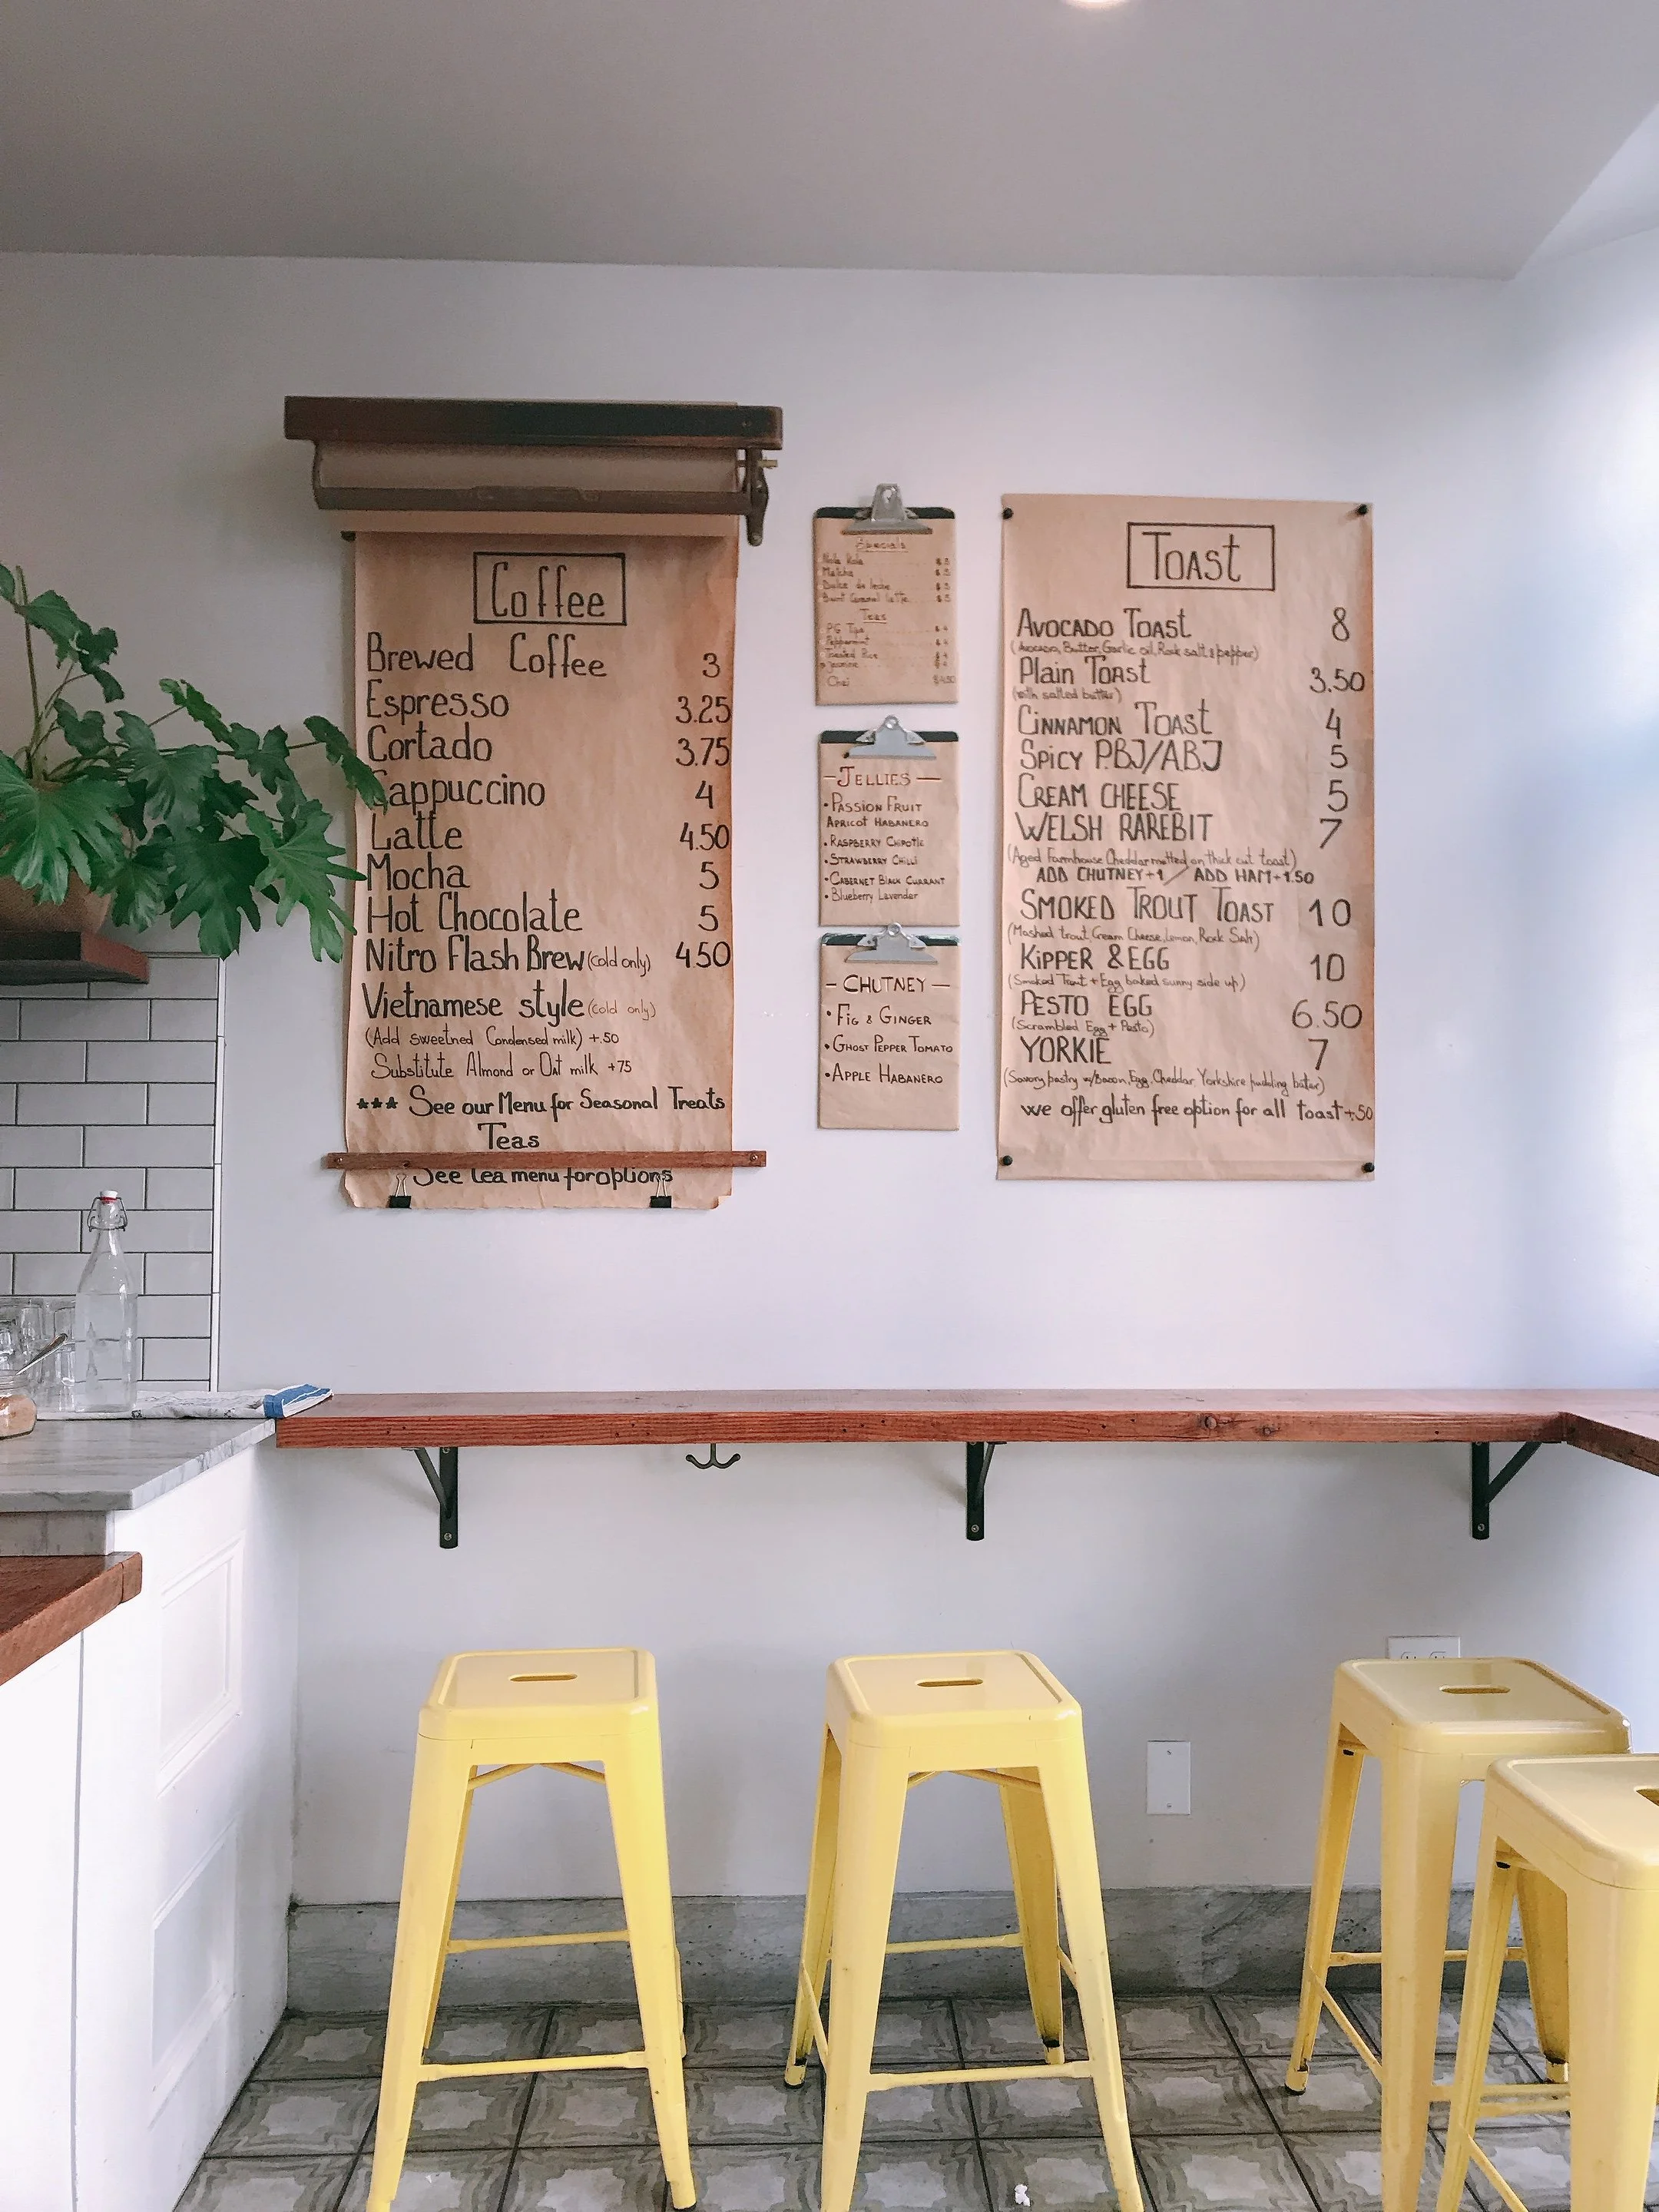 Coffee
Brewed Coffee 3
Espresso 3.25
Cortado 3.75
Cappuccino 4
Latte 4.50
Mocha 5
Hot Chocolate 5
Nitro Flash Brew (cold only) 4.50
Vietnamese style (cold only)
(Add sweetned Condensed milk) +.50
Substitute Almond or Oat milk +75
*** See our Menu for Seasonal Treats
Teas
See tea menu for options
Specials
Nola Kola $5
Matcha $5
Dulce de leche $5
Burnt Caramel latte $5
Teas
PG Tips $4
Peppermint $4
Toasted Rice $4
Jasmine $4
Chai $4.50
- JELLIES -
• PASSION FRUIT
APRICOT HABANERO
• RASPBERRY CHIPOTLE
• STRAWBERRY CHILLI
• CABERNET BLACK CURRANT
• Blueberry Lavender
- CHUTNEY -
• FIG & GINGER
• GHOST PEPPER TOMATO
• APPLE HABANERO
TOAST
AVOCADO TOAST 8
(Avocado, Butter, Garlic oil, Rock salt & pepper)
Plain TOAST 3.50
(with salted butter)
CINNAMON TOAST 4
SPICY PBJ/ABJ 5
CREAM CHEESE 5
WELSH RAREBIT 7
(Aged Farmhouse Cheddar melted on thick cut toast)
ADD CHUTNEY+1 / ADD HAM+1.50
SMOKED TROUT TOAST 10
(Mashed trout, Cream Cheese, Lemon, Rock Salt)
KIPPER & EGG 10
(Smoked Trout + Egg baked sunny side up)
PESTO EGG 6.50
(Scrambled Egg + Pesto)
YORKIE 7
(Savory pastry w/Bacon, Egg, Cheddar, Yorkshire pudding batter)
we offer gluten free option for all toast +.50